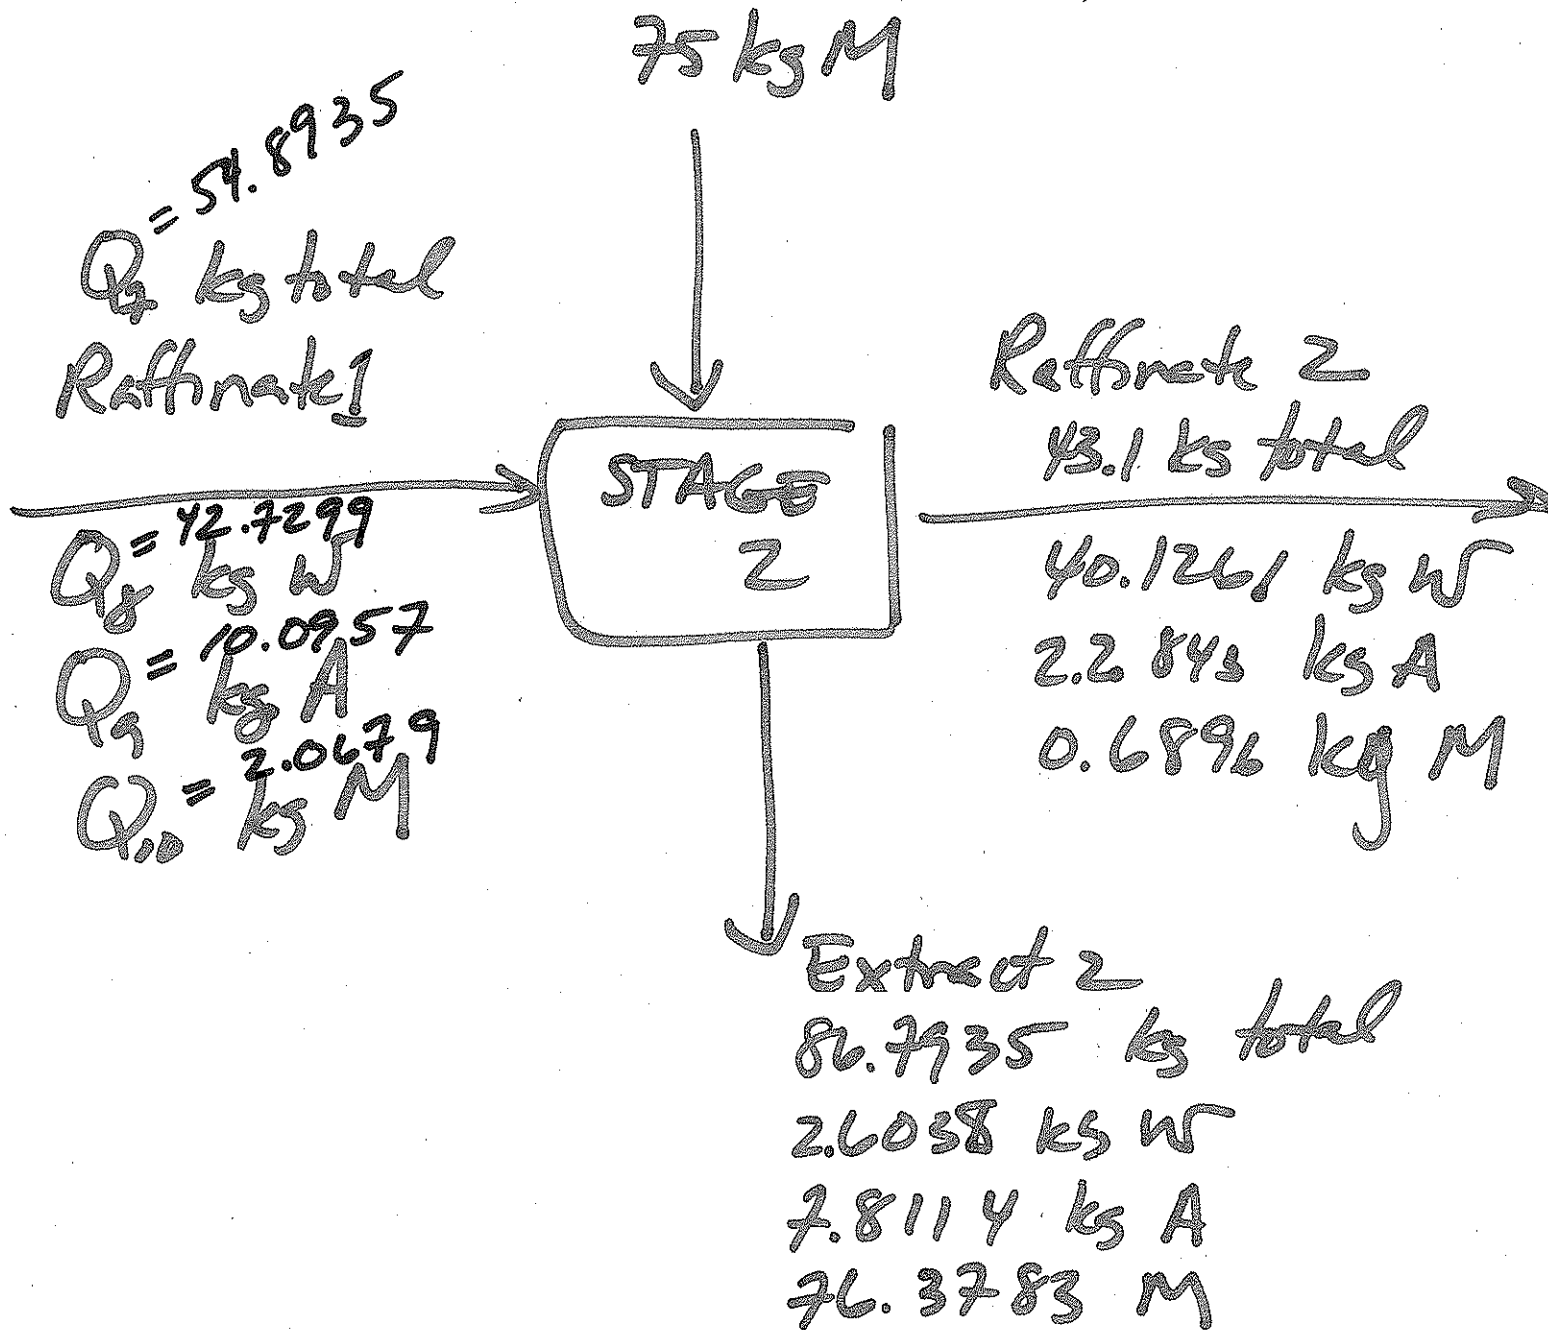 75 kg M
= 54.8935
Q7 kg total
Raffinate 1
STAGE
2
Q8 = 42.7299
kg W
Q9 = 10.0957
kg A
Q10 = 2.0679
kg M
Raffinate 2
43.1 kg total
40.1261 kg W
2.2843 kg A
0.6896 kg M
Extract 2
86.7935 kg total
2.6038 kg W
7.8114 kg A
76.3783 M